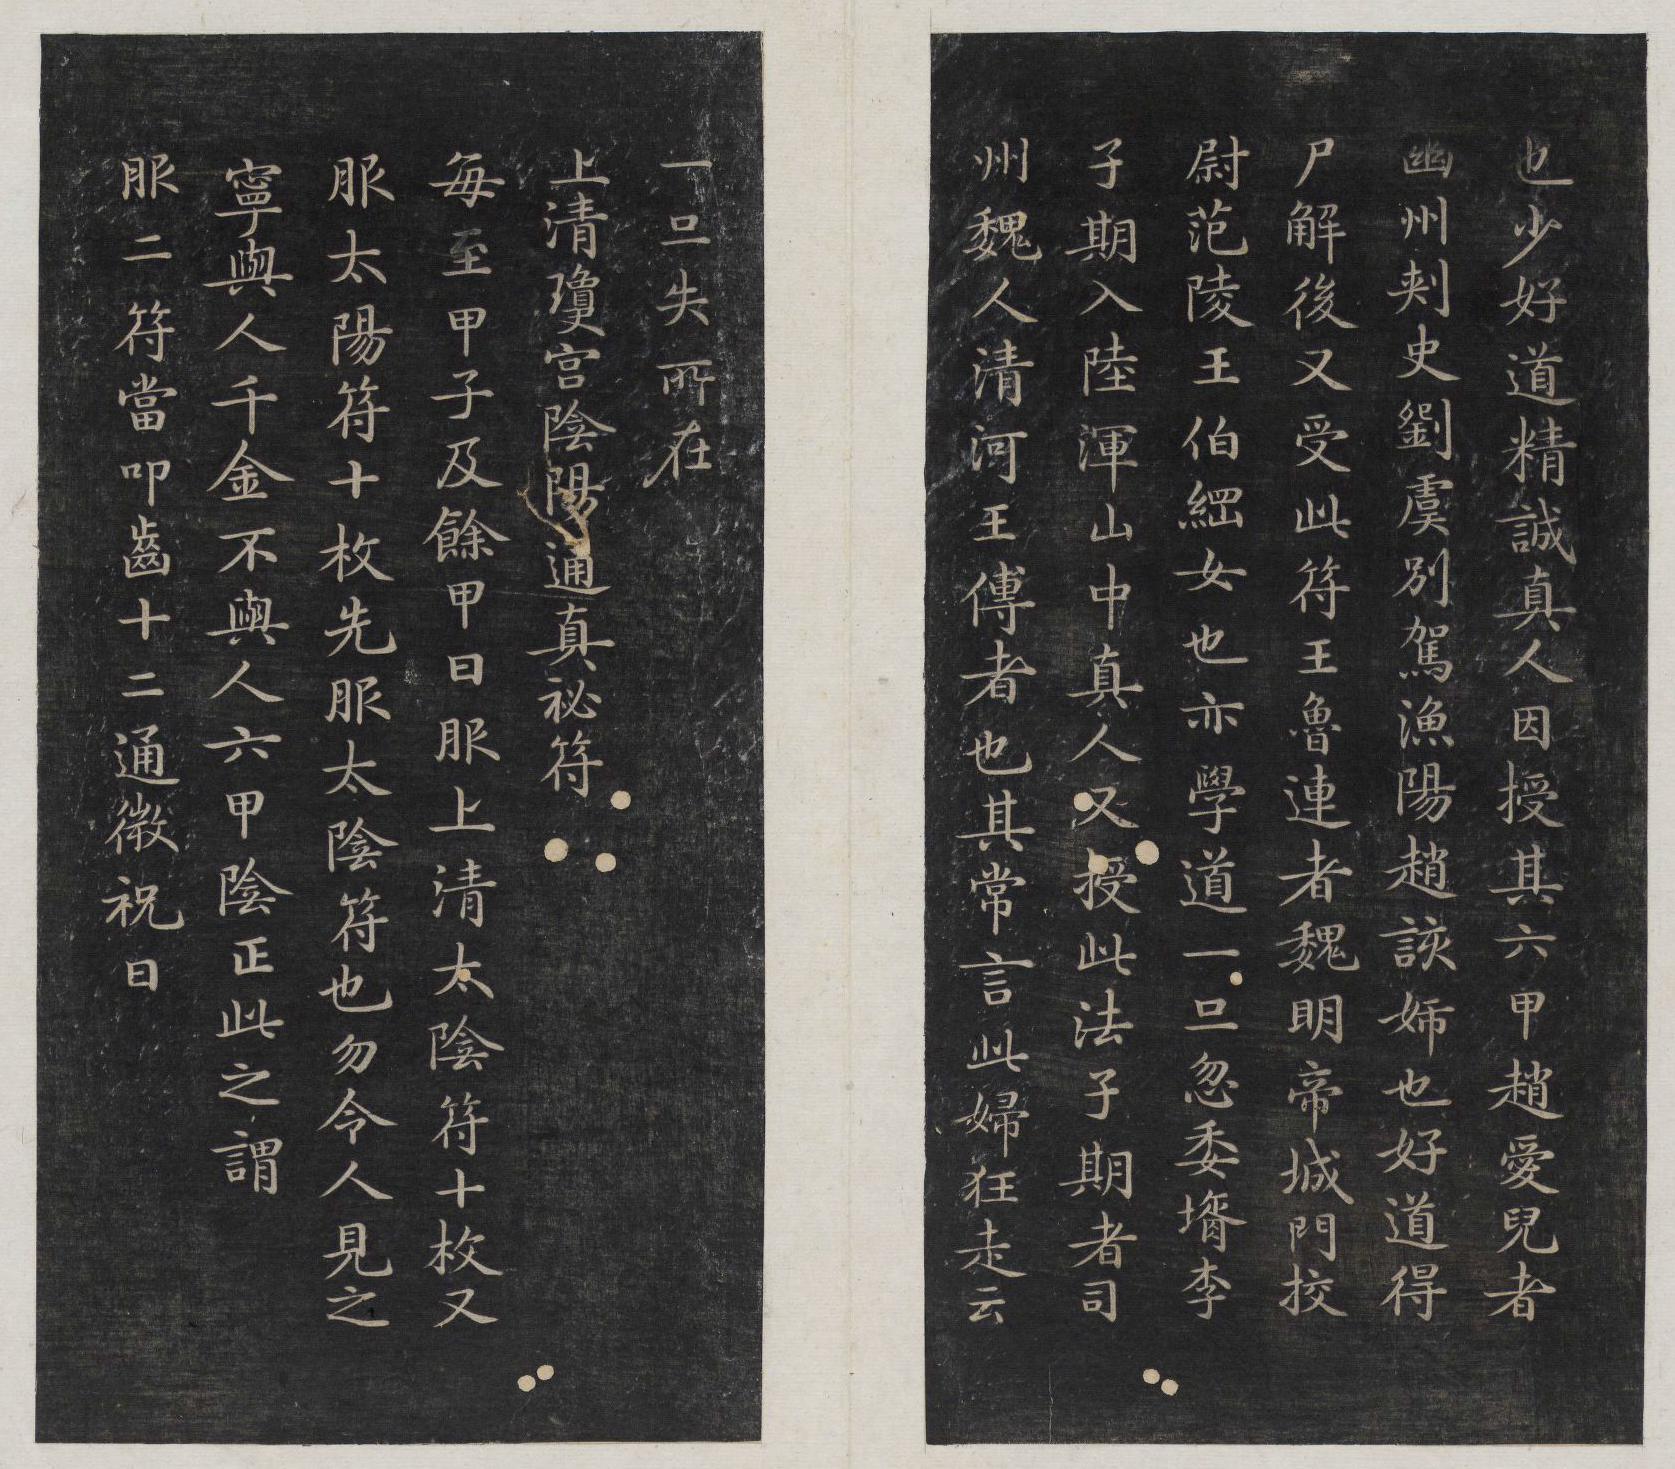 也少好道精誠真人因授其六甲趙愛兒者
幽州刺史劉虞別駕漁陽趙該姊也好道得
尸解後又受此符王魯連者魏明帝城門挍
尉范陵王伯綱女也亦學道一旦忽委壻李
子期入陸渾山中真人又授此法子期者司
州魏人清河王傅者也其常言此婦狂走云
一旦失所在
上清瓊宮陰陽通真祕符
每至甲子及餘甲日服上清太陰符十枚又
服太陽符十枚先服太陰符也勿令人見之
寧與人千金不與人六甲陰正此之謂
服二符當叩齒十二通微祝曰